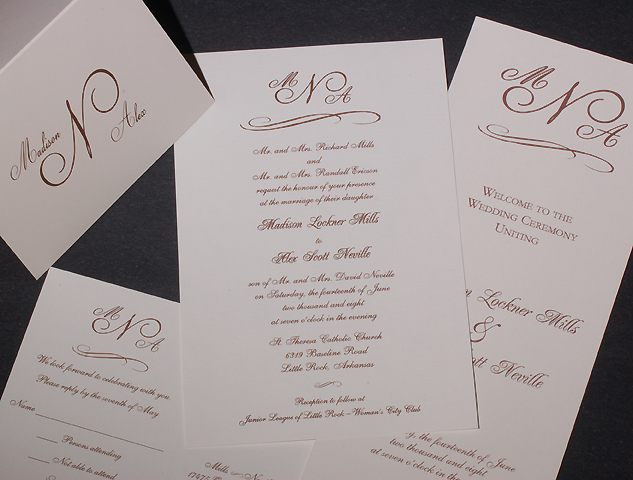 Madison
N
Alex
M N A
Mr. and Mrs. Richard Mills
and
Mr. and Mrs. Randall Ericson
request the honour of your presence
at the marriage of their daughter
Madison Lockner Mills
to
Alex Scott Neville
son of Mr. and Mrs. David Neville
on Saturday, the fourteenth of June
two thousand and eight
at seven o'clock in the evening
St. Theresa Catholic Church
6319 Baseline Road
Little Rock, Arkansas
Reception to follow at
Junior League of Little Rock - Woman's City Club
M N A
Welcome to the
Wedding Ceremony
Uniting
Lockner Mills
&
Scott Neville
the fourteenth of June
two thousand and eight
at seven o'clock in the
M N A
We look forward to celebrating with you.
Please reply by the seventh of May
Name
Persons attending
Not able to attend
Mills - Neville